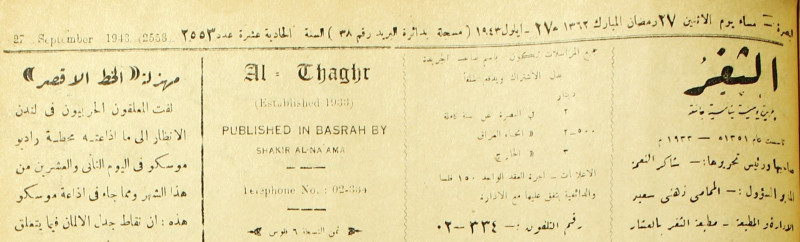 بصرة — مساء يوم الاثنين ٢٧ رمضان المبارك ١٣٦٢ ﻫ ٢٧ - ايلول ١٩٤٣ ( مسجلة بدائرة البريد رقم ٣٨ ) السنة الحادية عشرة عدد ٢٥٥٣
27 September 1943 (2553
الثغر
جريدة يومية سياسية جامعة
تأسست عام ١٣٥١ﻫ — ١٩٣٣ م
صاحبها ورئيس تحريرها :— شاكر النعمة
المدير المسؤول :— المحامي ذهني سعيد
الادارة والمطبعة — مطبعة الثغر بالعشار
جميع المراسلات تكون باسم صاحب الجريدة
بدل الاشتراك ويدفع سلفاً
دينار
٢ في البصرة عن سنة كاملة
٢-٥٠٠ « انحاء العراق
٣ « الخارج
الاعلانات — اجرة العقد الواحد ١٥٠ فلسا
والدائمية يتفق عليها مع الادارة
رقم التلفون :— ٣٣٤-٠٢
Al - Thaghr
(Established 1933)
PUBLISHED IN BASRAH BY
SHAKIR AL-NA'AMA
Telephone No. : 02-334
ثمن النسخة ٦ فلوس
مهزلة « الخط الاقصر »
لفت المعلقون الحربيون في لندن
الانظار الى ما اذاعته محطة راديو
موسكو في اليوم الثاني والعشرين من
هذا الشهر ومما جاء في اذاعة موسكو
هذه : ان نقاط جدل الالمان فيما يتعلق